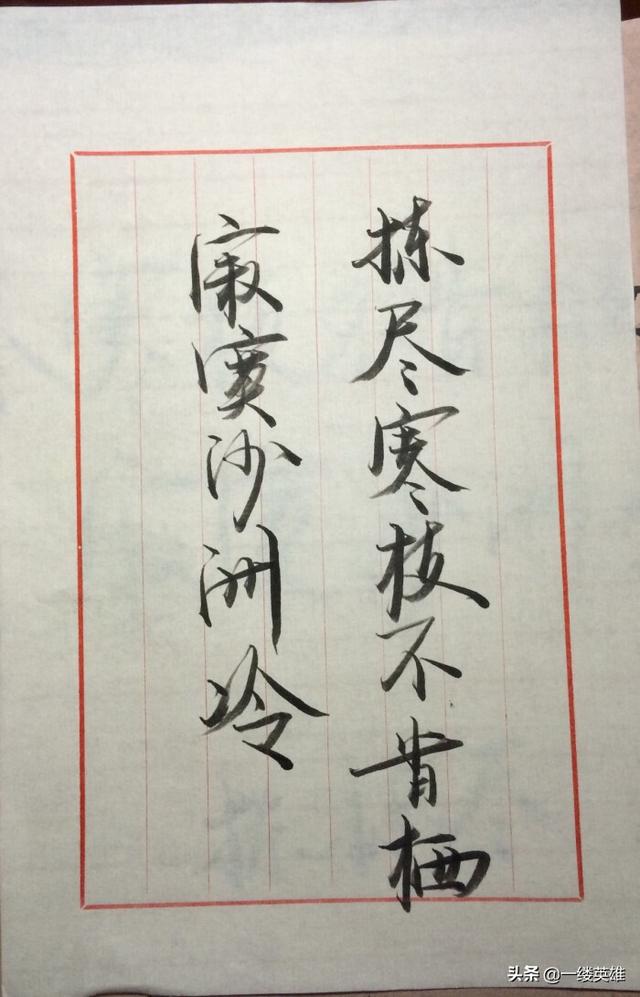 拣尽寒枝不肯栖
寂寞沙洲冷
头条 @一缕英雄